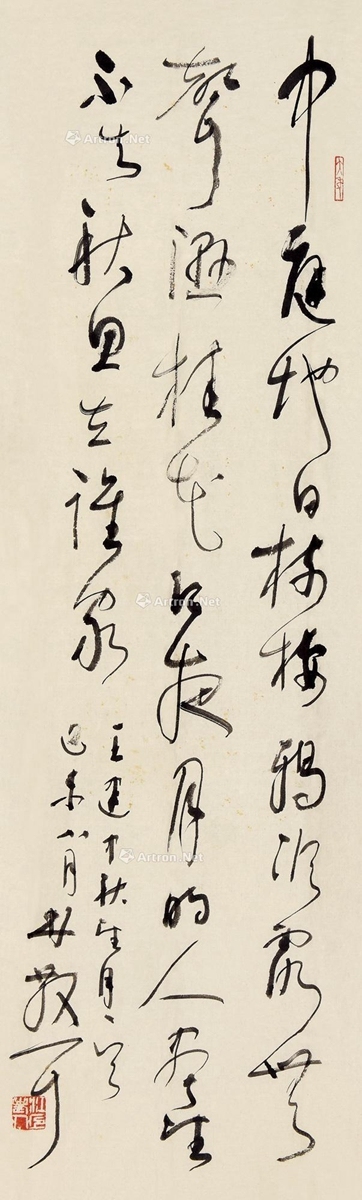 中庭地白樹棲鴉冷露無
聲濕桂花今夜月明人盡望
不知秋思在誰家
王建中秋望月
己未八月林散耳
Artron.Net
Artron.Net
Artron.Net